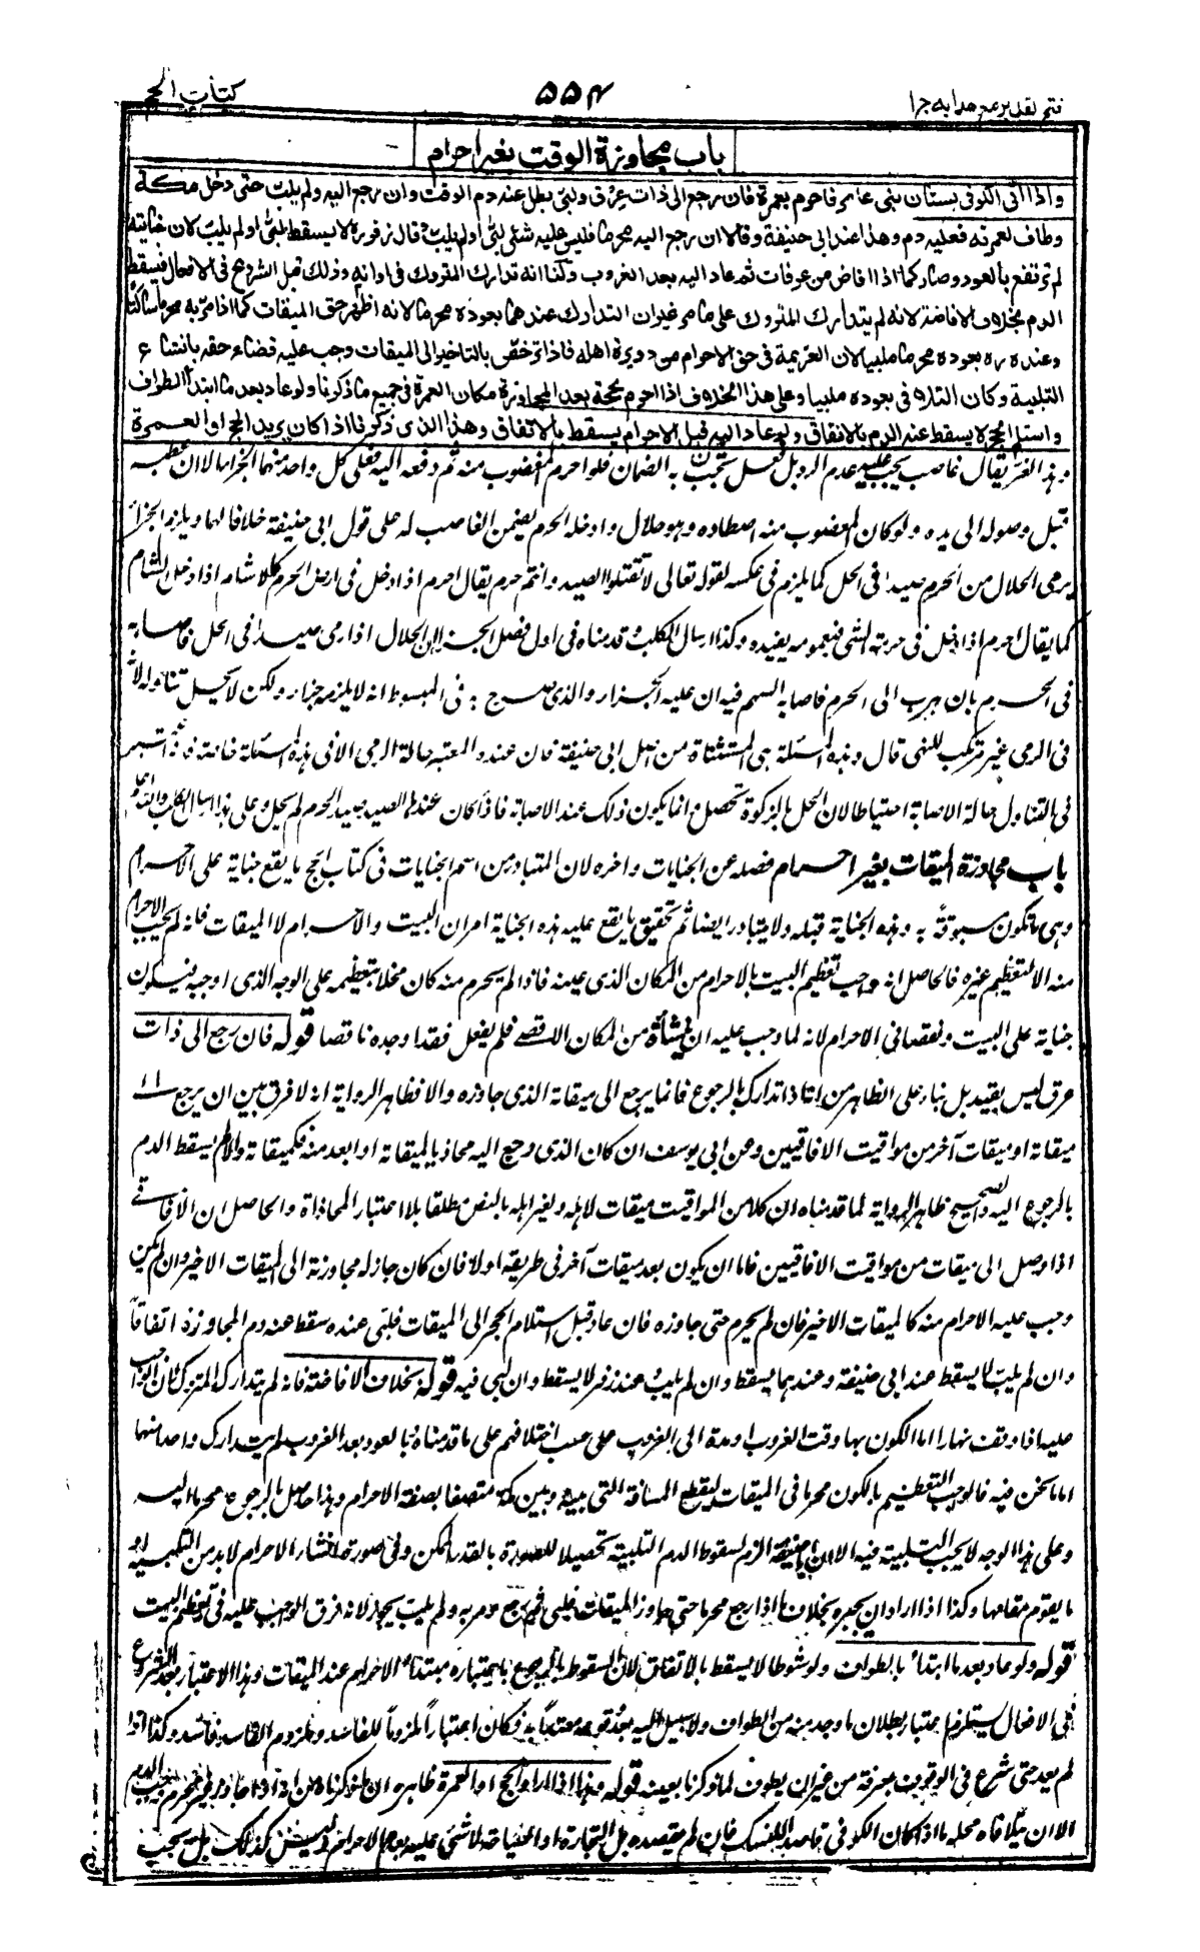 فتح القدير مع هدايه ج ١
٥٥٤
كتاب الحج
باب مجاوزة الوقت بغير احرام
واذا اتى الكوفى بستان بنى عامر فاحرم بعمرة فان رجع الى ذات عرق ولبى بطل عنه دم الوقت وان رجع اليه ولم يلب حتى دخل مكة
وطاف لعمرته فعليه دم وهذا عند ابى حنيفة وقالا ان رجع اليه محرما فليس عليه شئ لبى او لم يلب وقال زفر لا يسقط لبى او لم يلب لان جنايته
لم ترتفع بالعود وصار كما اذا افاض من عرفات ثم عاد اليه بعد الغروب ولنا انه تدارك المتروك فى اوانه وذلك قبل الشروع فى الافعال فيسقط
الدم بخلاف الافاضة لانه لم يتدارك المتروك على ما مر غير ان التدارك عندهما بعوده محرما لانه اظهر حق الميقات كما اذا مر به محرما ساكتا
وعنده ره بعوده محرما ملبيا لان العزيمة فى حق الاحرام من دويرة اهله فاذا ترخص بالتاخير الى الميقات وجب عليه قضاء حقه بانشاء
التلبية وكان التلافى بعوده ملبيا وعلى هذا الخلاف اذا احرم بحجة بعد المجاوزة مكان العمرة فى جميع ما ذكرنا ولو عاد بعد ما ابتدأ الطواف
واستلم الحجر لا يسقط عنه الدم بالاتفاق ولو عاد اليه قبل الاحرام يسقط بالاتفاق وهذا الذى ذكرنا اذا كان يريد الحج او العمرة
وهذا لغز يقال غاصب يجب عليه عدم الرد بل لو فعل يجب به الضمان فلو احرم المغصوب منه ثم دفعه اليه فعلى كل واحد منهما الجزاء الا ان عطب
قبل وصوله الى يده ولو كان المغصوب منه اصطاده وهو حلال وادخله الحرم يضمن الغاصب له على قول ابى حنيفة خلافا لهما ويلزم الجزاء
برمى الحلال من الحرم صيدا فى الحل كما يلزم فى عكسه لقوله تعالى لا تقتلوا الصيد وانتم حرم يقال احرم اذا دخل فى ارض الحرم كاشام اذا دخل الشام
كما يقال احرم اذا دخل فى حرمة الشئ فبعمومه يفيده وكذا ارسال الكلب وقدمناه فى اول فصل الجزاء ان الحلال اذا رمى صيدا فى الحل فاصابه
فى الحرم بان هرب الى الحرم فاصابه السهم فيه ان عليه الجزاء والذى صرح به فى المبسوط انه لا يلزمه جزاء ولكن لا يحل تناوله لانه
فى الرمى غير مرتكب للنهى قال وهذه المسئلة هى المستثناة من اصل ابى حنيفة فان عنده المعتبر حالة الرمى الا فى هذه المسئلة خاصة فانه اعتبر
فى التناول حالة الاصابة احتياطا لان الحل بالذكوة تحصل وانما يكون ذلك عند الاصابة فاذا كان عندها الصيد صيد الحرم لم يحل وعلى هذا ارسال الكلب والله اعلم
باب مجاوزة الميقات بغير احرام فصله عن الجنايات واخره لان المتبادر من اسم الجنايات فى كتاب الحج ما يقع جناية على الاحرام
وهى ما تكون مسبوقة به وهذه الجناية قبله ولا يتبادر ايضا ثم تحقيق ما يقع عليه هذه الجناية امران البيت والاحرام لا الميقات فانه لم يجب الاحرام
منه الا لتعظيم غيره فالحاصل انه وجب تعظيم البيت بالاحرام من المكان الذى عينه فاذا لم يحرم منه كان مخلا بتعظيمه على الوجه الذى اوجبه فيكون
جناية على البيت ونقصا فى الاحرام لانه لما وجب عليه ان ينشأه من المكان الاقصى فلم يفعل فقد اوجده ناقصا قوله فان رجع الى ذات
عرق ليس بقيد بل بناء على الظاهر من انه اذا تدارك بالرجوع فانما يرجع الى ميقاته الذى جاوزه والا فظاهر الرواية انه لا فرق بين ان يرجع الى
ميقاته او ميقات آخر من مواقيت الافاقيين وعن ابى يوسف ان كان الذى رجع اليه محاذيا لميقاته او ابعد منه فكميقاته والا لم يسقط الدم
بالرجوع اليه والصحيح ظاهر الرواية لما قدمناه ان كلا من المواقيت ميقات لاهله ولغير اهله بالنص مطلقا بلا اعتبار المحاذاة والحاصل ان الافاقى
اذا وصل الى ميقات من مواقيت الافاقيين فاما ان يكون بعد ميقات آخر فى طريقه اولا فان كان جاز له مجاوزته الى الميقات الاخير وان لم يكن
وجب عليه الاحرام منه كالميقات الاخير فان لم يحرم حتى جاوزه فان عاد قبل استلام الحجر الى الميقات فلبى عنده سقط عنه دم المجاوزة اتفاقا
وان لم يلب لا يسقط عند ابى حنيفة وعندهما يسقط وان لم يلب وعند زفر لا يسقط وان لبى فيه قوله بخلاف الافاضة فانه لم يتدارك المتروك لان الواجب
عليه اذا وقف نهارا اما الكون بها وقت الغروب او مده الى الغروب على حسب اختلافهم على ما قدمناه فبالعود بعد الغروب لم يتدارك واحدا منهما
اما ما نحن فيه فالواجب التعظيم بالكون محرما فى الميقات ليقطع المسافة التى بينه وبين مكة متصفا بصفة الاحرام وهذا حاصل بالرجوع محرما اليه
وعلى هذا الوجه لا يجب التلبية فيه الا ان ابا حنيفة الزم لسقوط الدم التلبية تحصيلا للصورة بالقدر الممكن وفى صورة انشاء الاحرام لا بد من التلبية او
ما يقوم مقامها وكذا اذا اراد ان يجبره بخلاف ما اذا رجع محرما حتى جاوز الميقات فلبى ثم رجع ومر به ولم يلب يجوز لانه فوق الواجب عليه فى تعظيم البيت
قوله ولو عاد بعد ما ابتدأ بالطواف ولو شوطا لا يسقط بالاتفاق لان السقوط بالرجوع باعتباره مبتدئ الاحرام عند الميقات وهذا الاعتبار بعد الشروع
فى الافعال يستلزم اعتبار بطلان ما وجد منه من الطواف ولا سبيل اليه بعد وقوعه معتدا به فكان اعتبارا ملزوما للفاسد وملزوم الفاسد فاسد وكذا اذا
لم يعد حتى شرع فى الوقوف بعرفة من غير ان يطوف لما ذكرنا بعينه قوله وهذا اذا اراد الحج او العمرة ظاهره ان ما ذكرناه من انه اذا جاوز غير محرم يجب الدم
الا ان يتلافاه محله ما اذا كان الكوفى قاصدا للنسك فان لم يقصده بل التجارة او السياحة لا شئ عليه بعد الاحرام وليس كذلك بل يجب